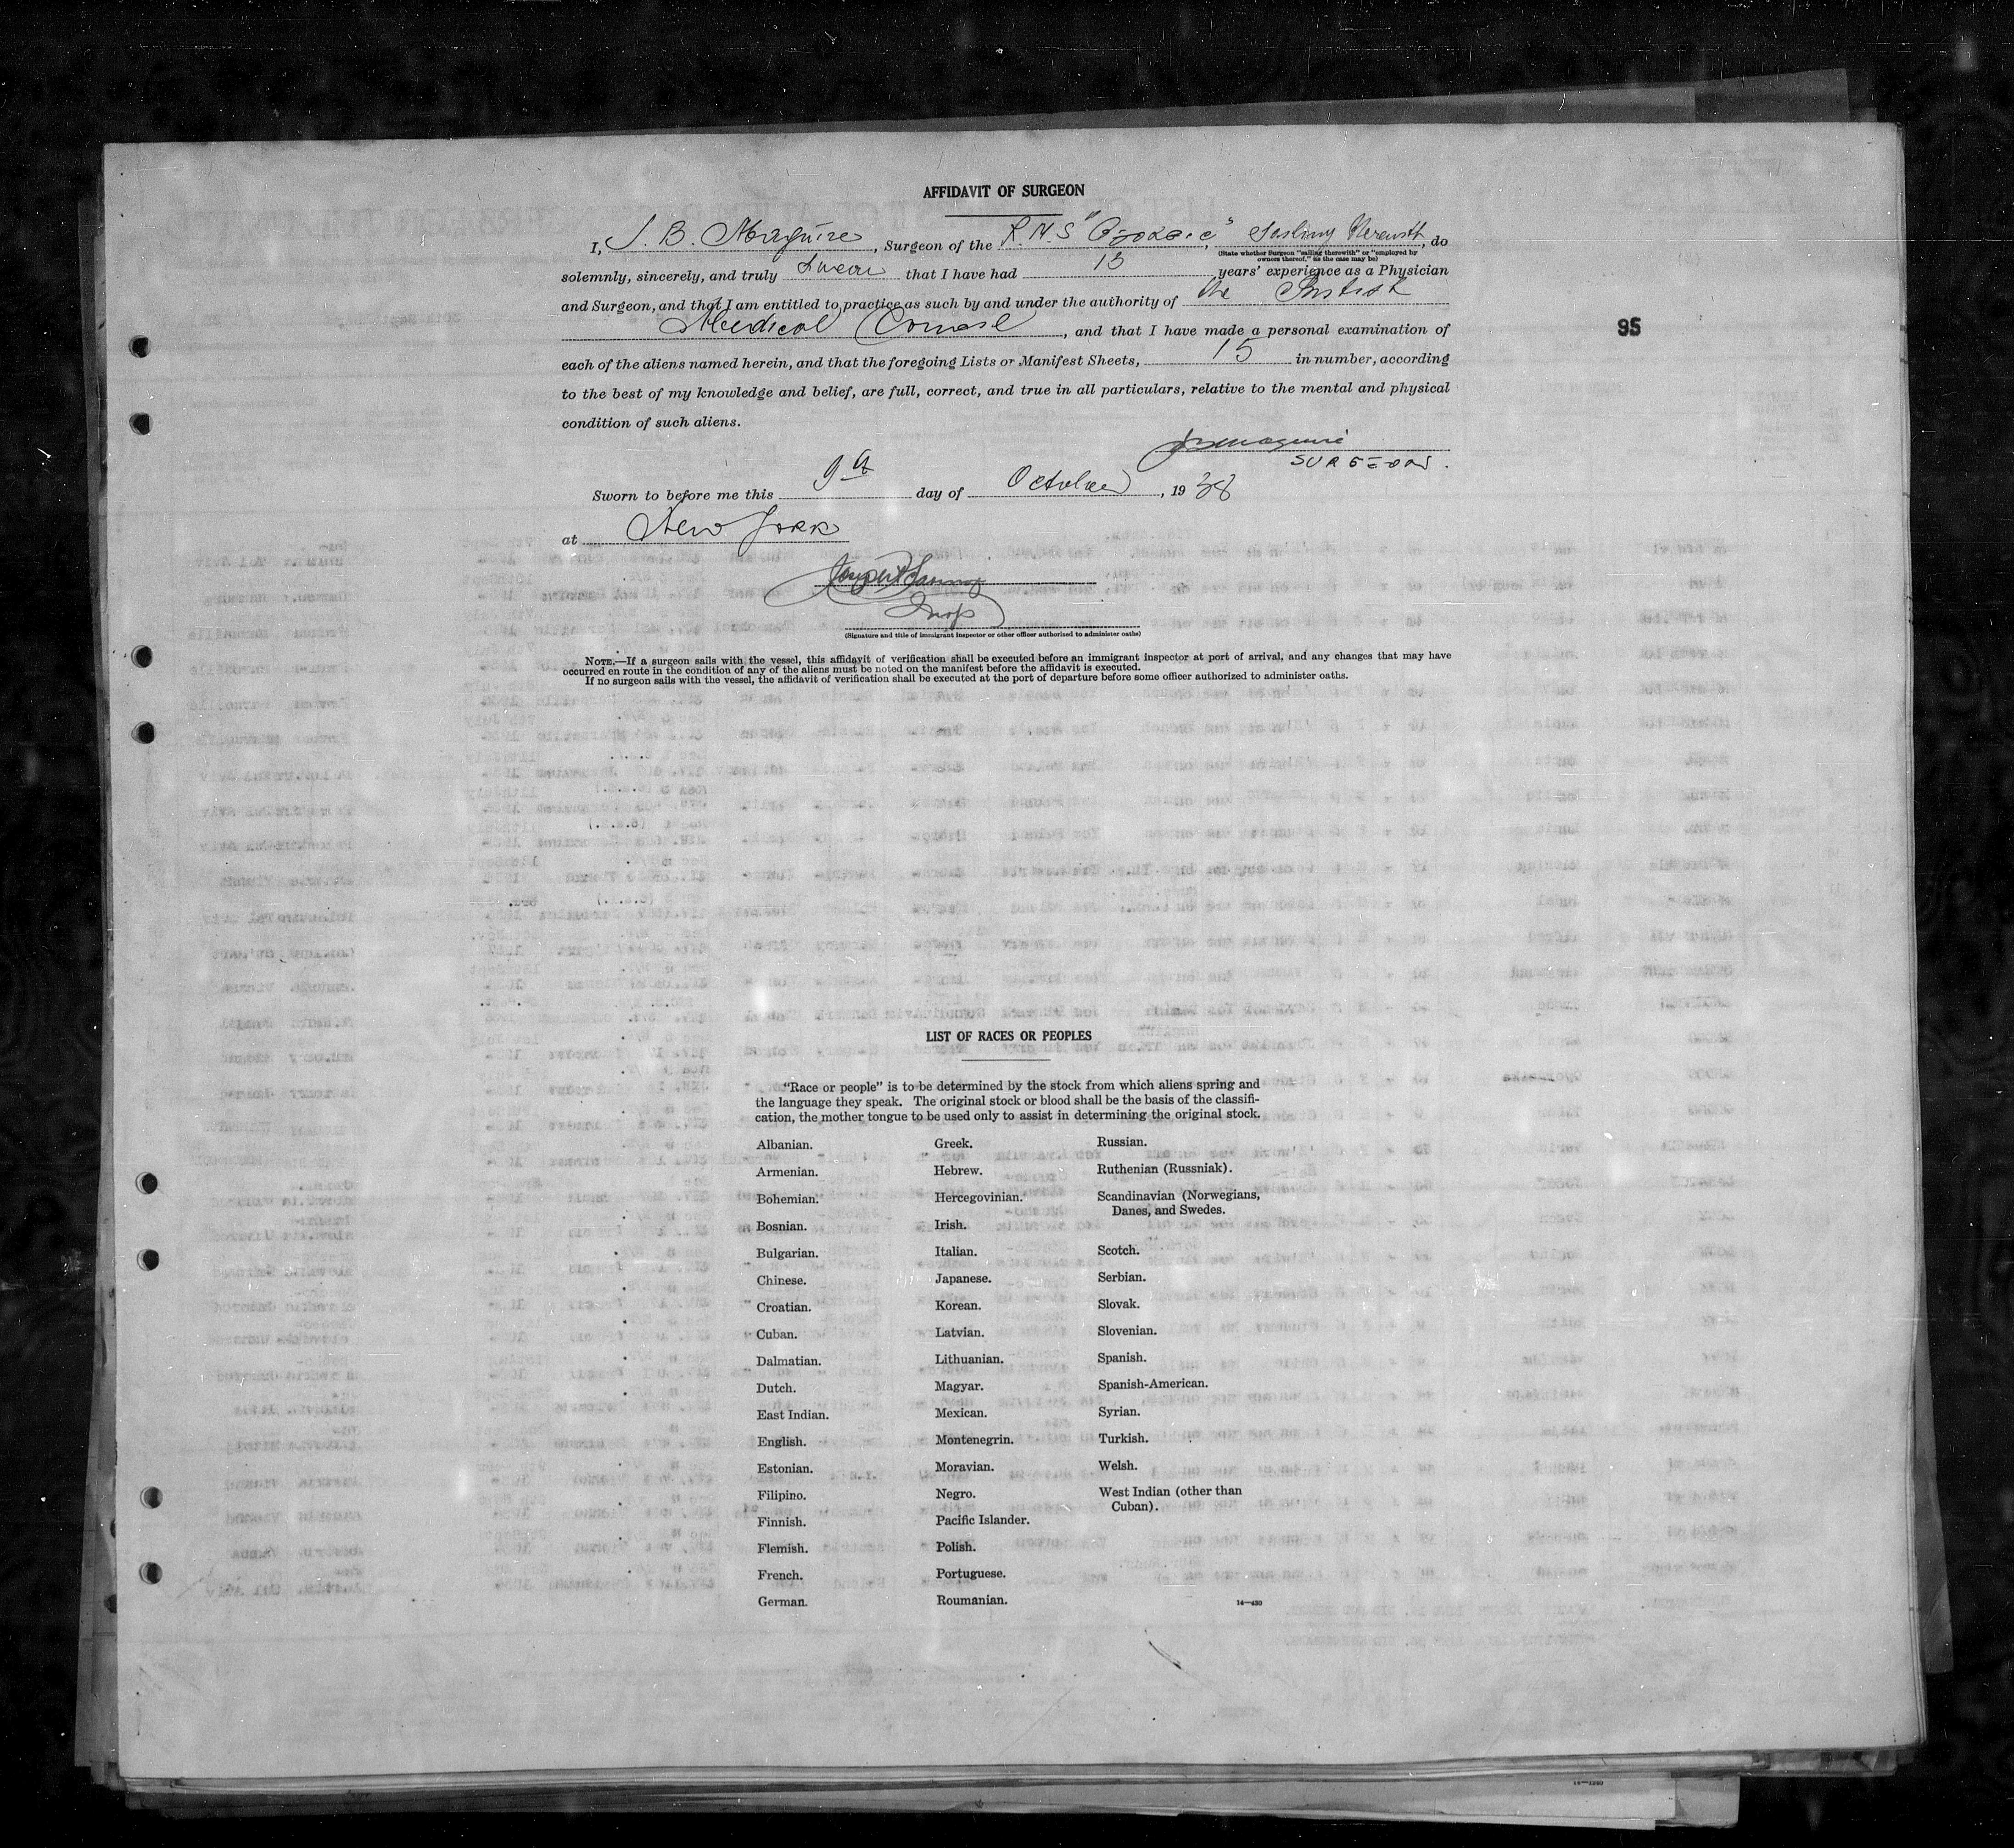 AFFIDAVIT OF SURGEON
I, J. B. Maguire, Surgeon of the R.M.S "Georgic", Sailing Therewith, do
(State whether Surgeon "sailing therewith" or "employed by
owners thereof," as the case may be)
solemnly, sincerely, and truly swear that I have had 13 years' experience as a Physician
and Surgeon, and that I am entitled to practice as such by and under the authority of the British
Medical Council, and that I have made a personal examination of
95
each of the aliens named herein, and that the foregoing Lists or Manifest Sheets, 15 in number, according
to the best of my knowledge and belief, are full, correct, and true in all particulars, relative to the mental and physical
condition of such aliens.
JBMaguire
SURGEON.
Sworn to before me this 9th day of October, 1938
at New York
Insp
(Signature and title of immigrant inspector or other officer authorized to administer oaths)
NOTE.—If a surgeon sails with the vessel, this affidavit of verification shall be executed before an immigrant inspector at port of arrival, and any changes that may have
occurred en route in the condition of any of the aliens must be noted on the manifest before the affidavit is executed.
If no surgeon sails with the vessel, the affidavit of verification shall be executed at the port of departure before some officer authorized to administer oaths.
LIST OF RACES OR PEOPLES
"Race or people" is to be determined by the stock from which aliens spring and
the language they speak. The original stock or blood shall be the basis of the classifi-
cation, the mother tongue to be used only to assist in determining the original stock.
Albanian.
Armenian.
Bohemian.
Bosnian.
Bulgarian.
Chinese.
Croatian.
Cuban.
Dalmatian.
Dutch.
East Indian.
English.
Estonian.
Filipino.
Finnish.
Flemish.
French.
German.
Greek.
Hebrew.
Hercegovinian.
Irish.
Italian.
Japanese.
Korean.
Latvian.
Lithuanian.
Magyar.
Mexican.
Montenegrin.
Moravian.
Negro.
Pacific Islander.
Polish.
Portuguese.
Roumanian.
Russian.
Ruthenian (Russniak).
Scandinavian (Norwegians,
Danes, and Swedes.
Scotch.
Serbian.
Slovak.
Slovenian.
Spanish.
Spanish-American.
Syrian.
Turkish.
Welsh.
West Indian (other than
Cuban).
14—430